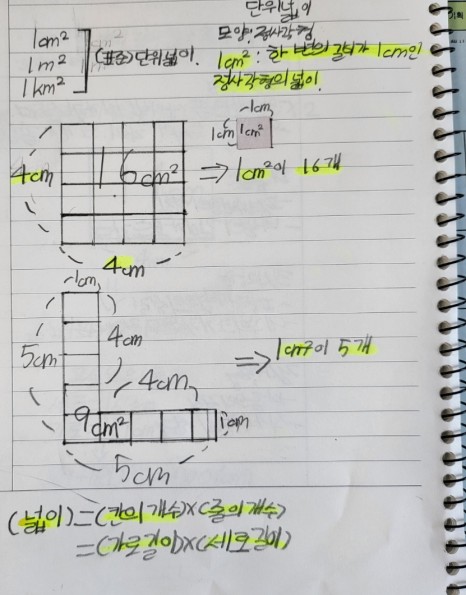 단위넓이
모양: 정사각형
1cm²
1m²
1km²
(표준)단위넓이.
1cm²: 한 변의 길이가 1cm인
정사각형의 넓이.
1cm
1cm
1cm²
4cm
16cm²
⇒ 1cm²이 16개
4cm
1cm
5cm
4cm
4cm
⇒ 1cm²이 5개
9cm²
1cm
5cm
(넓이)=(칸의 개수)×(줄의 개수)
=(가로길이)×(세로길이)